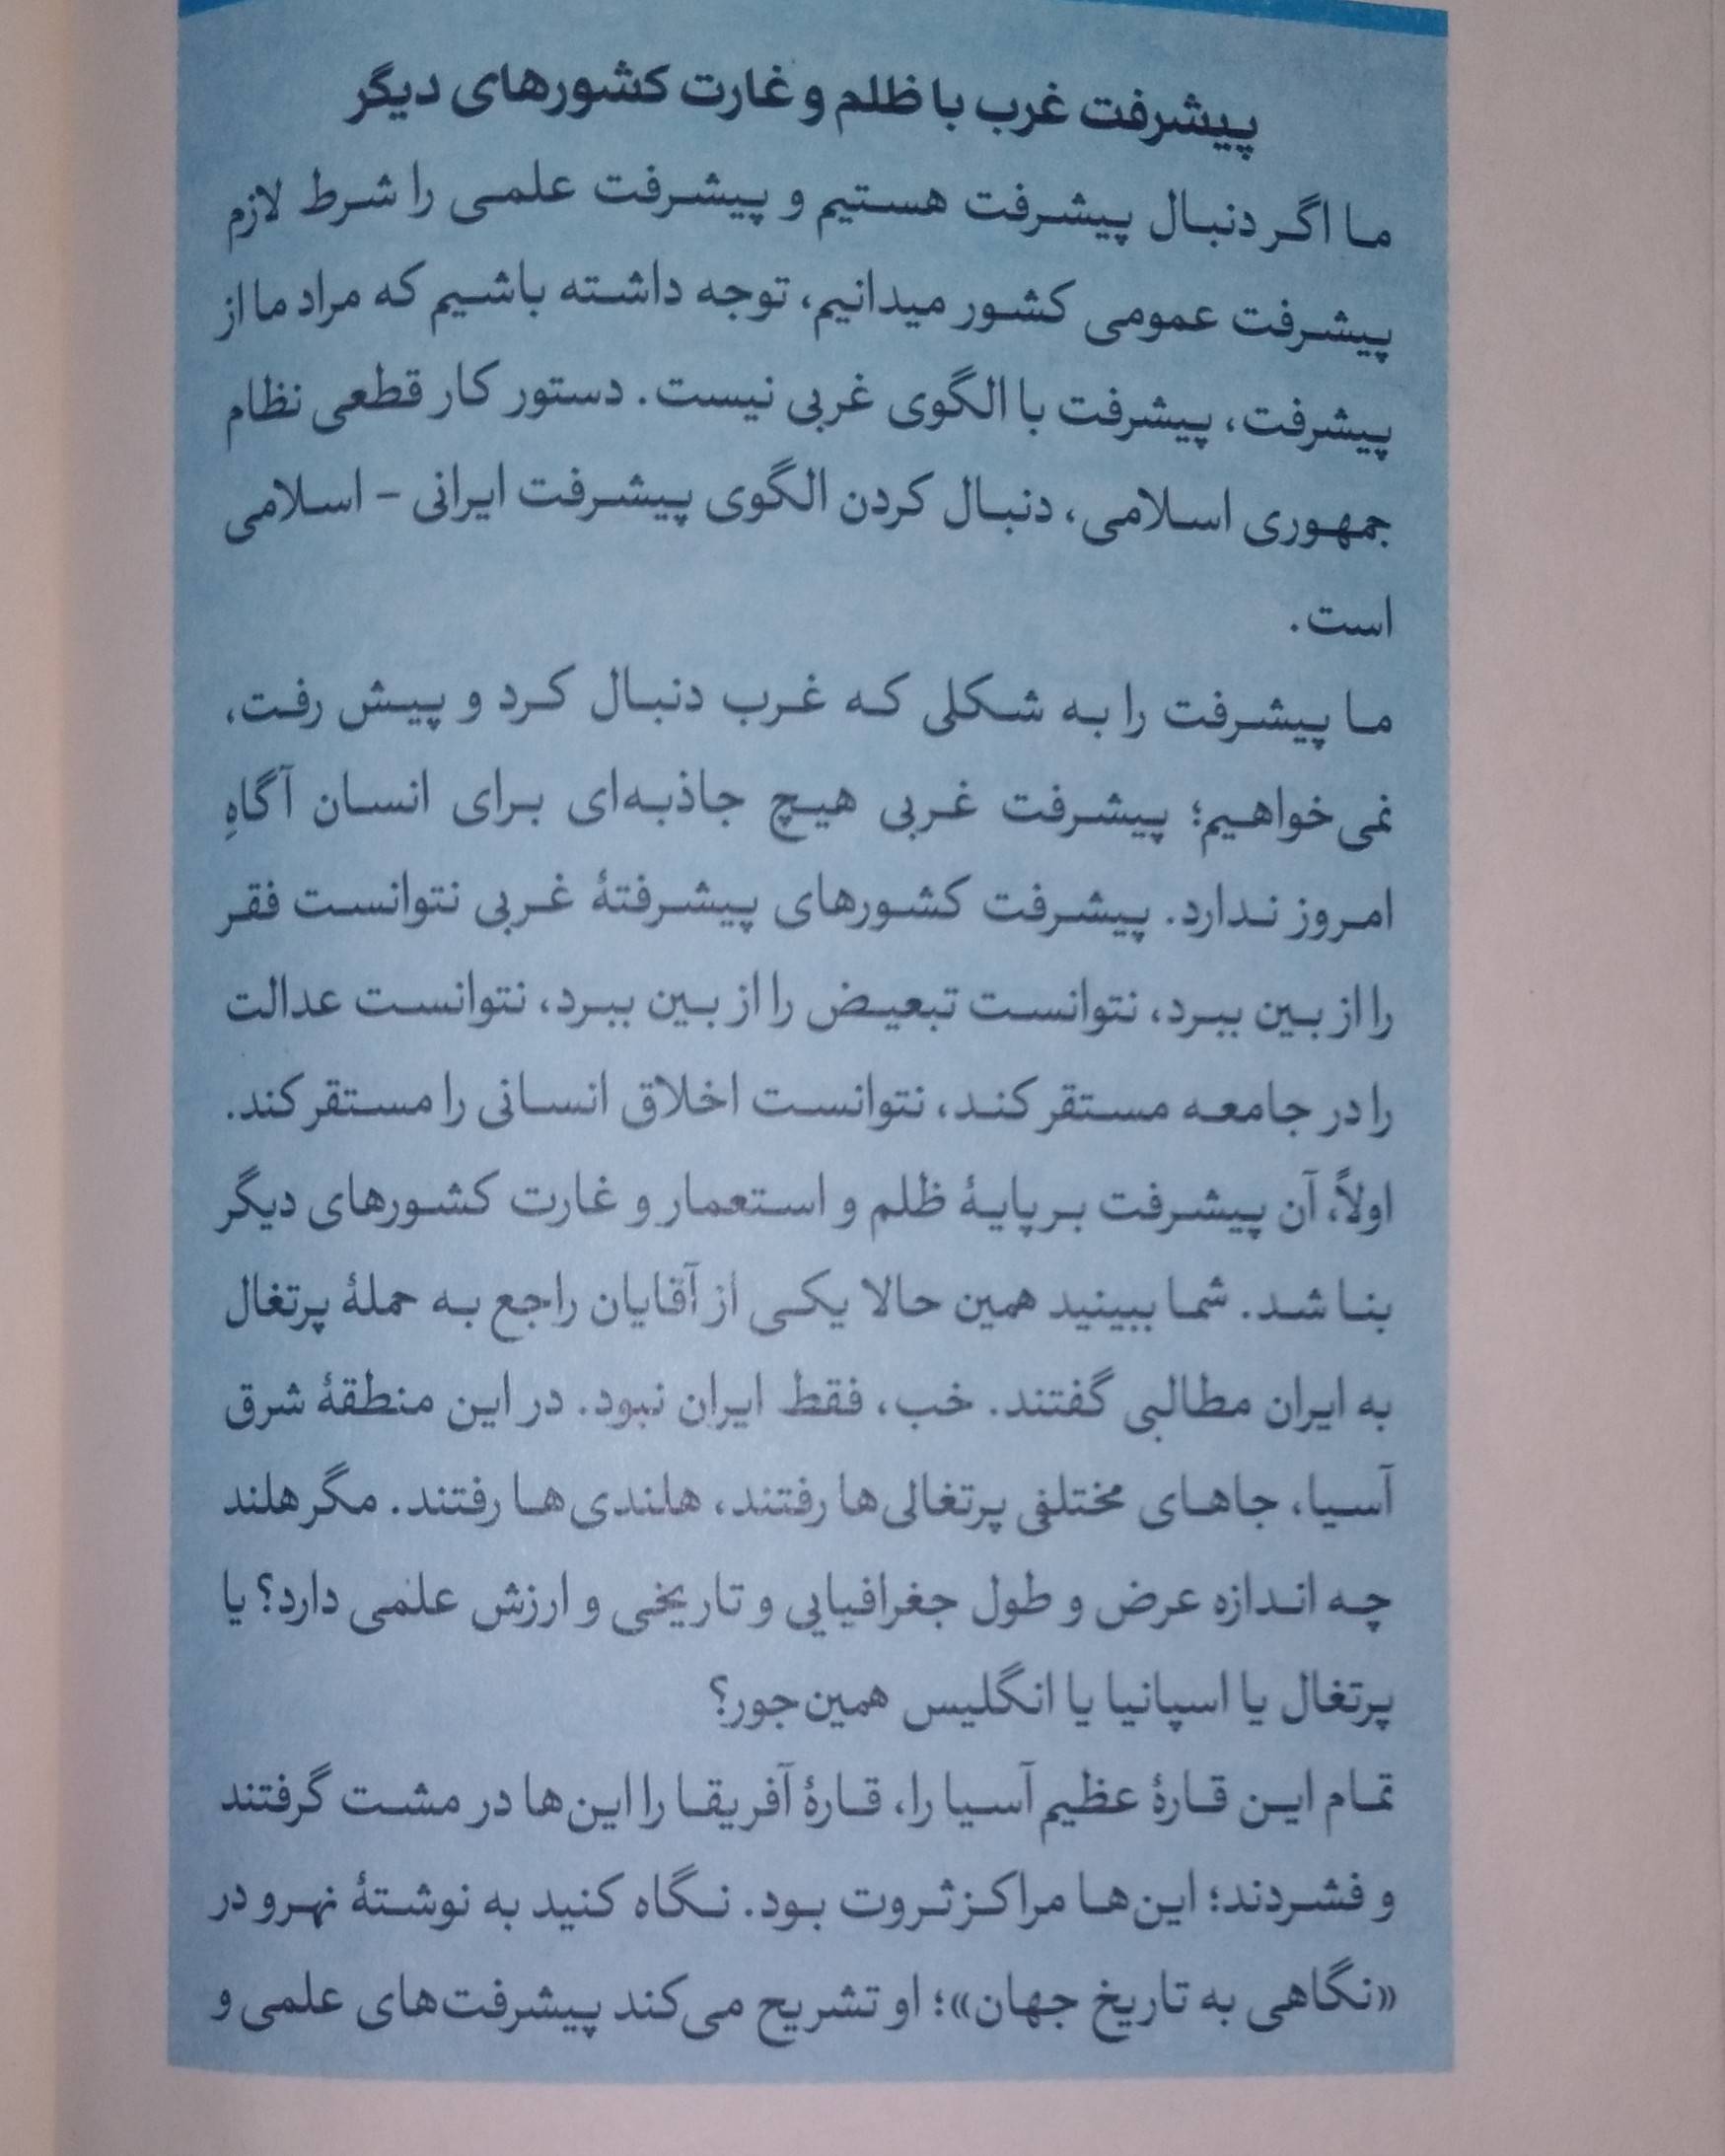 پیشرفت غرب با ظلم و غارت کشورهای دیگر
ما اگر دنبال پیشرفت هستیم و پیشرفت علمی را شرط لازم
پیشرفت عمومی کشور میدانیم، توجه داشته باشیم که مراد ما از
پیشرفت، پیشرفت با الگوی غربی نیست. دستور کار قطعی نظام
جمهوری اسلامی، دنبال کردن الگوی پیشرفت ایرانی - اسلامی
است.
ما پیشرفت را به شکلی که غرب دنبال کرد و پیش رفت،
نمی‌خواهیم؛ پیشرفت غربی هیچ جاذبه‌ای برای انسان آگاهِ
امروز ندارد. پیشرفت کشورهای پیشرفتهٔ غربی نتوانست فقر
را از بین ببرد، نتوانست تبعیض را از بین ببرد، نتوانست عدالت
را در جامعه مستقر کند، نتوانست اخلاق انسانی را مستقر کند.
اولاً، آن پیشرفت بر پایهٔ ظلم و استعمار و غارت کشورهای دیگر
بنا شد. شما ببینید همین حالا یکی از آقایان راجع به حملهٔ پرتغال
به ایران مطالبی گفتند. خب، فقط ایران نبود. در این منطقهٔ شرق
آسیا، جاهای مختلفی پرتغالی‌ها رفتند، هلندی‌ها رفتند. مگر هلند
چه اندازه عرض و طول جغرافیایی و تاریخی و ارزش علمی دارد؟ یا
پرتغال یا اسپانیا یا انگلیس همین‌جور؟
تمام این قارهٔ عظیم آسیا را، قارهٔ آفریقا را این‌ها در مشت گرفتند
و فشردند؛ این‌ها مراکز ثروت بود. نگاه کنید به نوشتهٔ نهرو در
«نگاهی به تاریخ جهان»؛ او تشریح می‌کند پیشرفت‌های علمی و